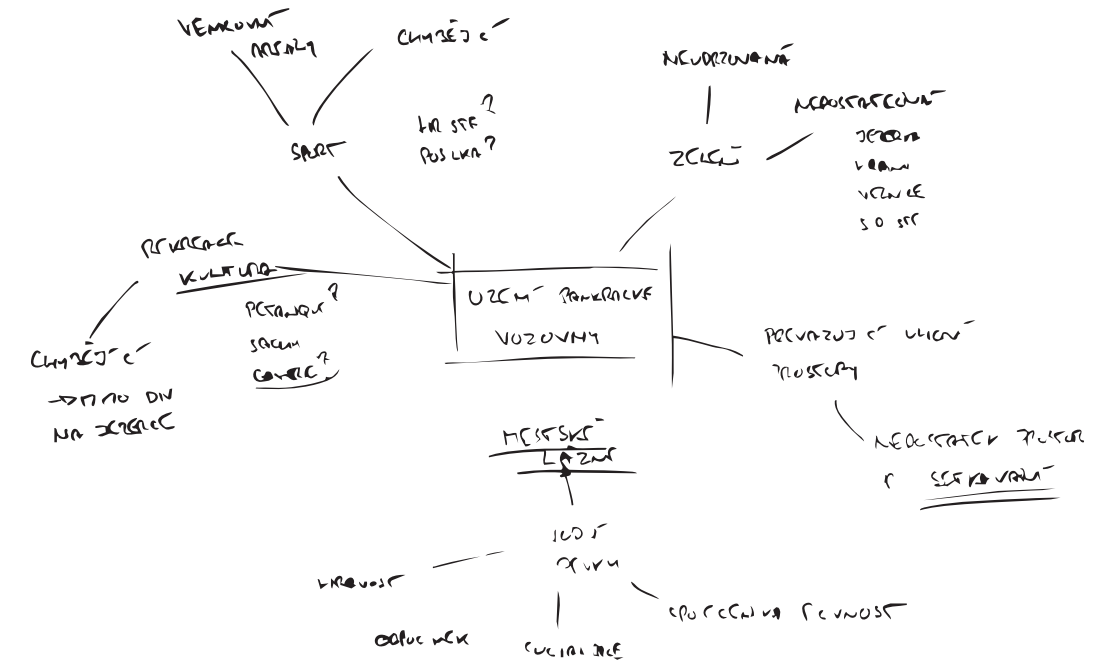 VENKOVNÍ
AREÁLY
CHYBĚJÍCÍ
SPORT
HŘIŠTĚ?
POSILKA?
NEUDRŽOVANÁ
NEDOSTATEČNÁ
ZELEŇ
JEZERA
VEZNICE
SO STE
REKREACE
KULTURA
PETANQUE?
ŠACHY
CHYBĚJÍCÍ
→ MIMO DIV
NA JEZERCE
ÚZEMÍ PANKRÁCKÉ
VOZOVNY
PŘEVAŽUJÍCÍ ULIČNÍ
PROSTORY
NEDOSTATEK PROSTOR
K SETKÁVÁNÍ
MĚSTSKÉ
LÁZNĚ
ZDRAVOST
ODPOČINEK
SOCIALIZACE
SPOLEČENSKÁ ROVNOST